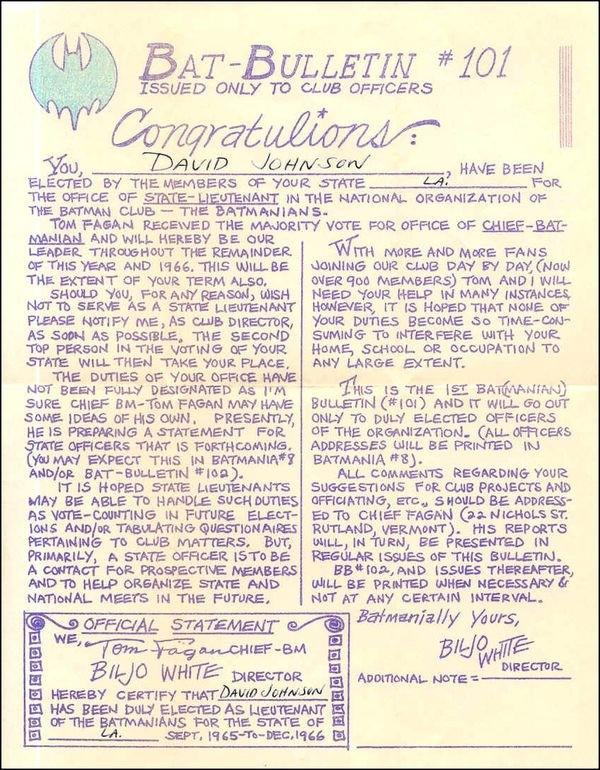 BAT-BULLETIN #101
ISSUED ONLY TO CLUB OFFICERS
Congratulions:
YOU, DAVID JOHNSON, HAVE BEEN
ELECTED BY THE MEMBERS OF YOUR STATE LA. FOR
THE OFFICE OF STATE-LIEUTENANT IN THE NATIONAL ORGANIZATION OF
THE BATMAN CLUB — THE BATMANIANS.
TOM FAGAN RECEIVED THE MAJORITY VOTE FOR OFFICE OF CHIEF-BAT-
MANIAN AND WILL HEREBY BE OUR
LEADER THROUGHOUT THE REMAINDER
OF THIS YEAR AND 1966. THIS WILL BE
THE EXTENT OF YOUR TERM ALSO.
SHOULD YOU, FOR ANY REASON, WISH
NOT TO SERVE AS A STATE LIEUTENANT
PLEASE NOTIFY ME, AS CLUB DIRECTOR,
AS SOON AS POSSIBLE. THE SECOND
TOP PERSON IN THE VOTING OF YOUR
STATE WILL THEN TAKE YOUR PLACE.
THE DUTIES OF YOUR OFFICE HAVE
NOT BEEN FULLY DESIGNATED AS I'M
SURE CHIEF BM-TOM FAGAN MAY HAVE
SOME IDEAS OF HIS OWN. PRESENTLY,
HE IS PREPARING A STATEMENT FOR
STATE OFFICERS THAT IS FORTHCOMING.
(YOU MAY EXPECT THIS IN BATMANIA #8
AND/OR BAT-BULLETIN #102).
IT IS HOPED STATE LIEUTENANTS
MAY BE ABLE TO HANDLE SUCH DUTIES
AS VOTE-COUNTING IN FUTURE ELECT-
IONS AND/OR TABULATING QUESTIONAIRES
PERTAINING TO CLUB MATTERS. BUT,
PRIMARILY, A STATE OFFICER IS TO BE
A CONTACT FOR PROSPECTIVE MEMBERS
AND TO HELP ORGANIZE STATE AND
NATIONAL MEETS IN THE FUTURE.
WITH MORE AND MORE FANS
JOINING OUR CLUB DAY BY DAY, (NOW
OVER 900 MEMBERS) TOM AND I WILL
NEED YOUR HELP IN MANY INSTANCES,
HOWEVER, IT IS HOPED THAT NONE OF
YOUR DUTIES BECOME SO TIME-CON-
SUMING TO INTERFERE WITH YOUR
HOME, SCHOOL OR OCCUPATION TO
ANY LARGE EXTENT.
THIS IS THE 1ST BAT(MANIAN)
BULLETIN (#101) AND IT WILL GO OUT
ONLY TO DULY ELECTED OFFICERS
OF THE ORGANIZATION. (ALL OFFICERS
ADDRESSES WILL BE PRINTED IN
BATMANIA #8).
ALL COMMENTS REGARDING YOUR
SUGGESTIONS FOR CLUB PROJECTS AND
OFFICIATING, ETC., SHOULD BE ADDRESS-
ED TO CHIEF FAGAN (22 NICHOLS ST.
RUTLAND, VERMONT). HIS REPORTS
WILL, IN TURN, BE PRESENTED IN
REGULAR ISSUES OF THIS BULLETIN.
BB #102, AND ISSUES THEREAFTER,
WILL BE PRINTED WHEN NECESSARY &
NOT AT ANY CERTAIN INTERVAL.
Batmanially Yours,
BILJO WHITE
DIRECTOR
ADDITIONAL NOTE =
OFFICIAL STATEMENT
WE, Tom Fagan CHIEF-BM
BILJO WHITE DIRECTOR
HEREBY CERTIFY THAT DAVID JOHNSON
HAS BEEN DULY ELECTED AS LIEUTENANT
OF THE BATMANIANS FOR THE STATE OF
LA. SEPT, 1965-TO-DEC, 1966